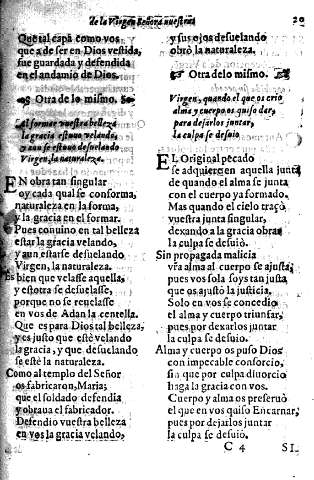 de la Virgen Señora nuestra 20
Que tal capa como vos
que a de ser en Dios vestida,
fue guardada y defendida
en el andamio de Dios.
Otra de lo mismo.
Al formar vuestra belleza
la gracia estuuo velando,
y aun se estuuo desuelando
Virgen, la naturaleza.
EN obra tan singular
oy cada qual se conforma,
naturaleza en la forma,
y la gracia en el formar.
Pues conuino en tal belleza
estar la gracia velando,
y aun estarse desuelando
Virgen, la naturaleza.
Es bien que velasse aquella,
y estotra se desuelasse,
porque no se reuelasse
en vos de Adan la centella.
Que es para Dios tal belleza,
y es justo que estè velando
la gracia, y que desuelando
se estè la naturaleza.
Como al templo del Señor
os fabricaron, Maria;
que el soldado defendia
y obraua el fabricador.
Defendio vuestra belleza
en vos la gracia velando,
y sus ojos desuelando
obrò la naturaleza.
Otra de lo mismo.
Virgen, quando el que os crio
alma y cuerpo os quiso dar,
para dejarlos juntar,
la culpa se desuio.
EL Original pecado
se adquiere en aquella junta
de quando el alma se junta
con el cuerpo ya formado.
Mas quando el cielo traçò
vuestra junta singular,
dexando a la gracia obrar
la culpa se desuiò.
Sin propagada malicia
vr̃a alma al cuerpo se ajusta,
pues vos sola soys tan justa
que os ajustò la justicia.
Solo en vos se concedio
el alma y cuerpo triunfar,
pues por dexarlos juntar
la culpa se desuiò.
Alma y cuerpo os puso Dios
con impecable consorcio,
sin que por culpa diuorcio
haga la gracia con vos.
Cuerpo y alma os preseruò
el que en vos quiso Encarnar,
pues por dejarlos juntar
la culpa se desuiò.
C 4 SI